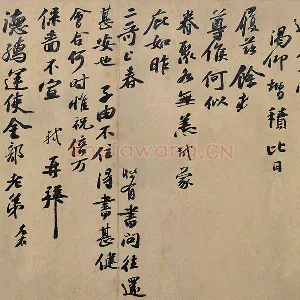 渴仰增積比日
履茲餘
尊候何似
眷聚各無恙軾蒙
庇如昨
二哥上春
有書問往還
甚安也 子由不住得書甚健
會合何時惟祝倍万
保嗇不宣 軾再拜
德孺運使金部老弟